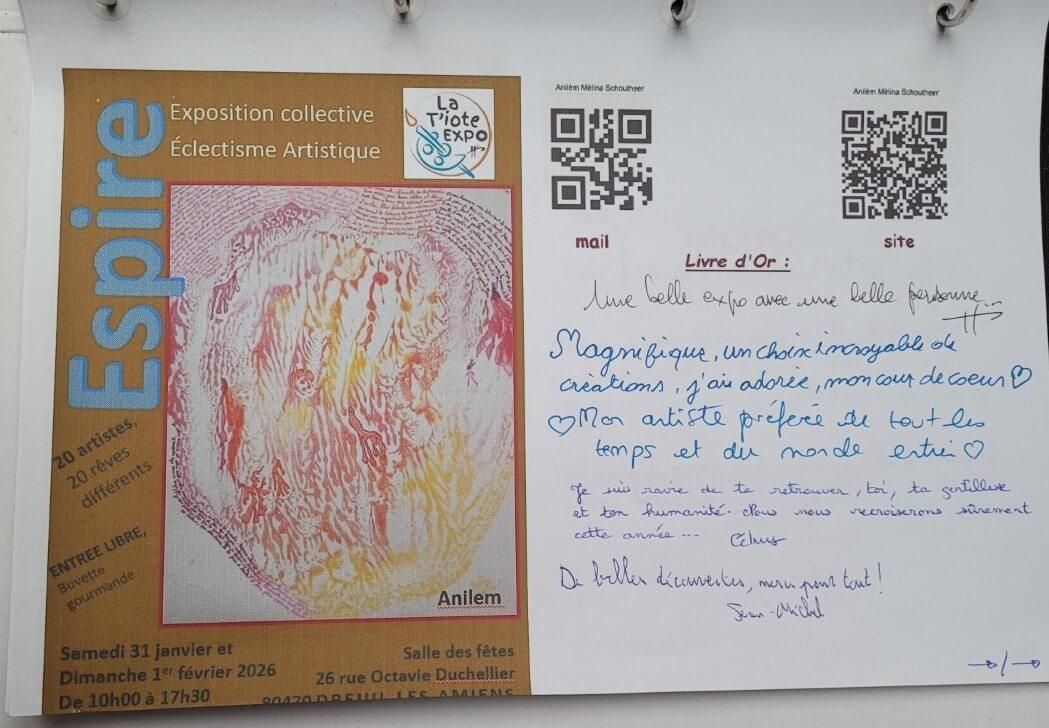 Espire
Exposition collective
Éclectisme Artistique
La
T'iote
EXPO
20 artistes,
20 rêves
différents
ENTREE LIBRE,
Buvette
gourmande
Anilem
Samedi 31 janvier et
Dimanche 1er février 2026
De 10h00 à 17h30
Salle des fêtes
26 rue Octavie Duchellier
80470 DREUIL LES AMIENS
Anilèm Mélina Schoutheer
mail
Anilèm Mélina Schoutheer
site
Livre d'Or :
Une belle expo avec une belle personne...
Magnifique, un choix incroyable de
créations, j'ai adorée, mon cour de coeur
Mon artiste préférée de tout les
temps et du monde entier
Je suis ravie de te retrouver, toi, ta gentillesse
et ton humanité. Nous nous recroiserons sûrement
cette année...
De belles découvertes, merci pour tout !
Jean-Michel